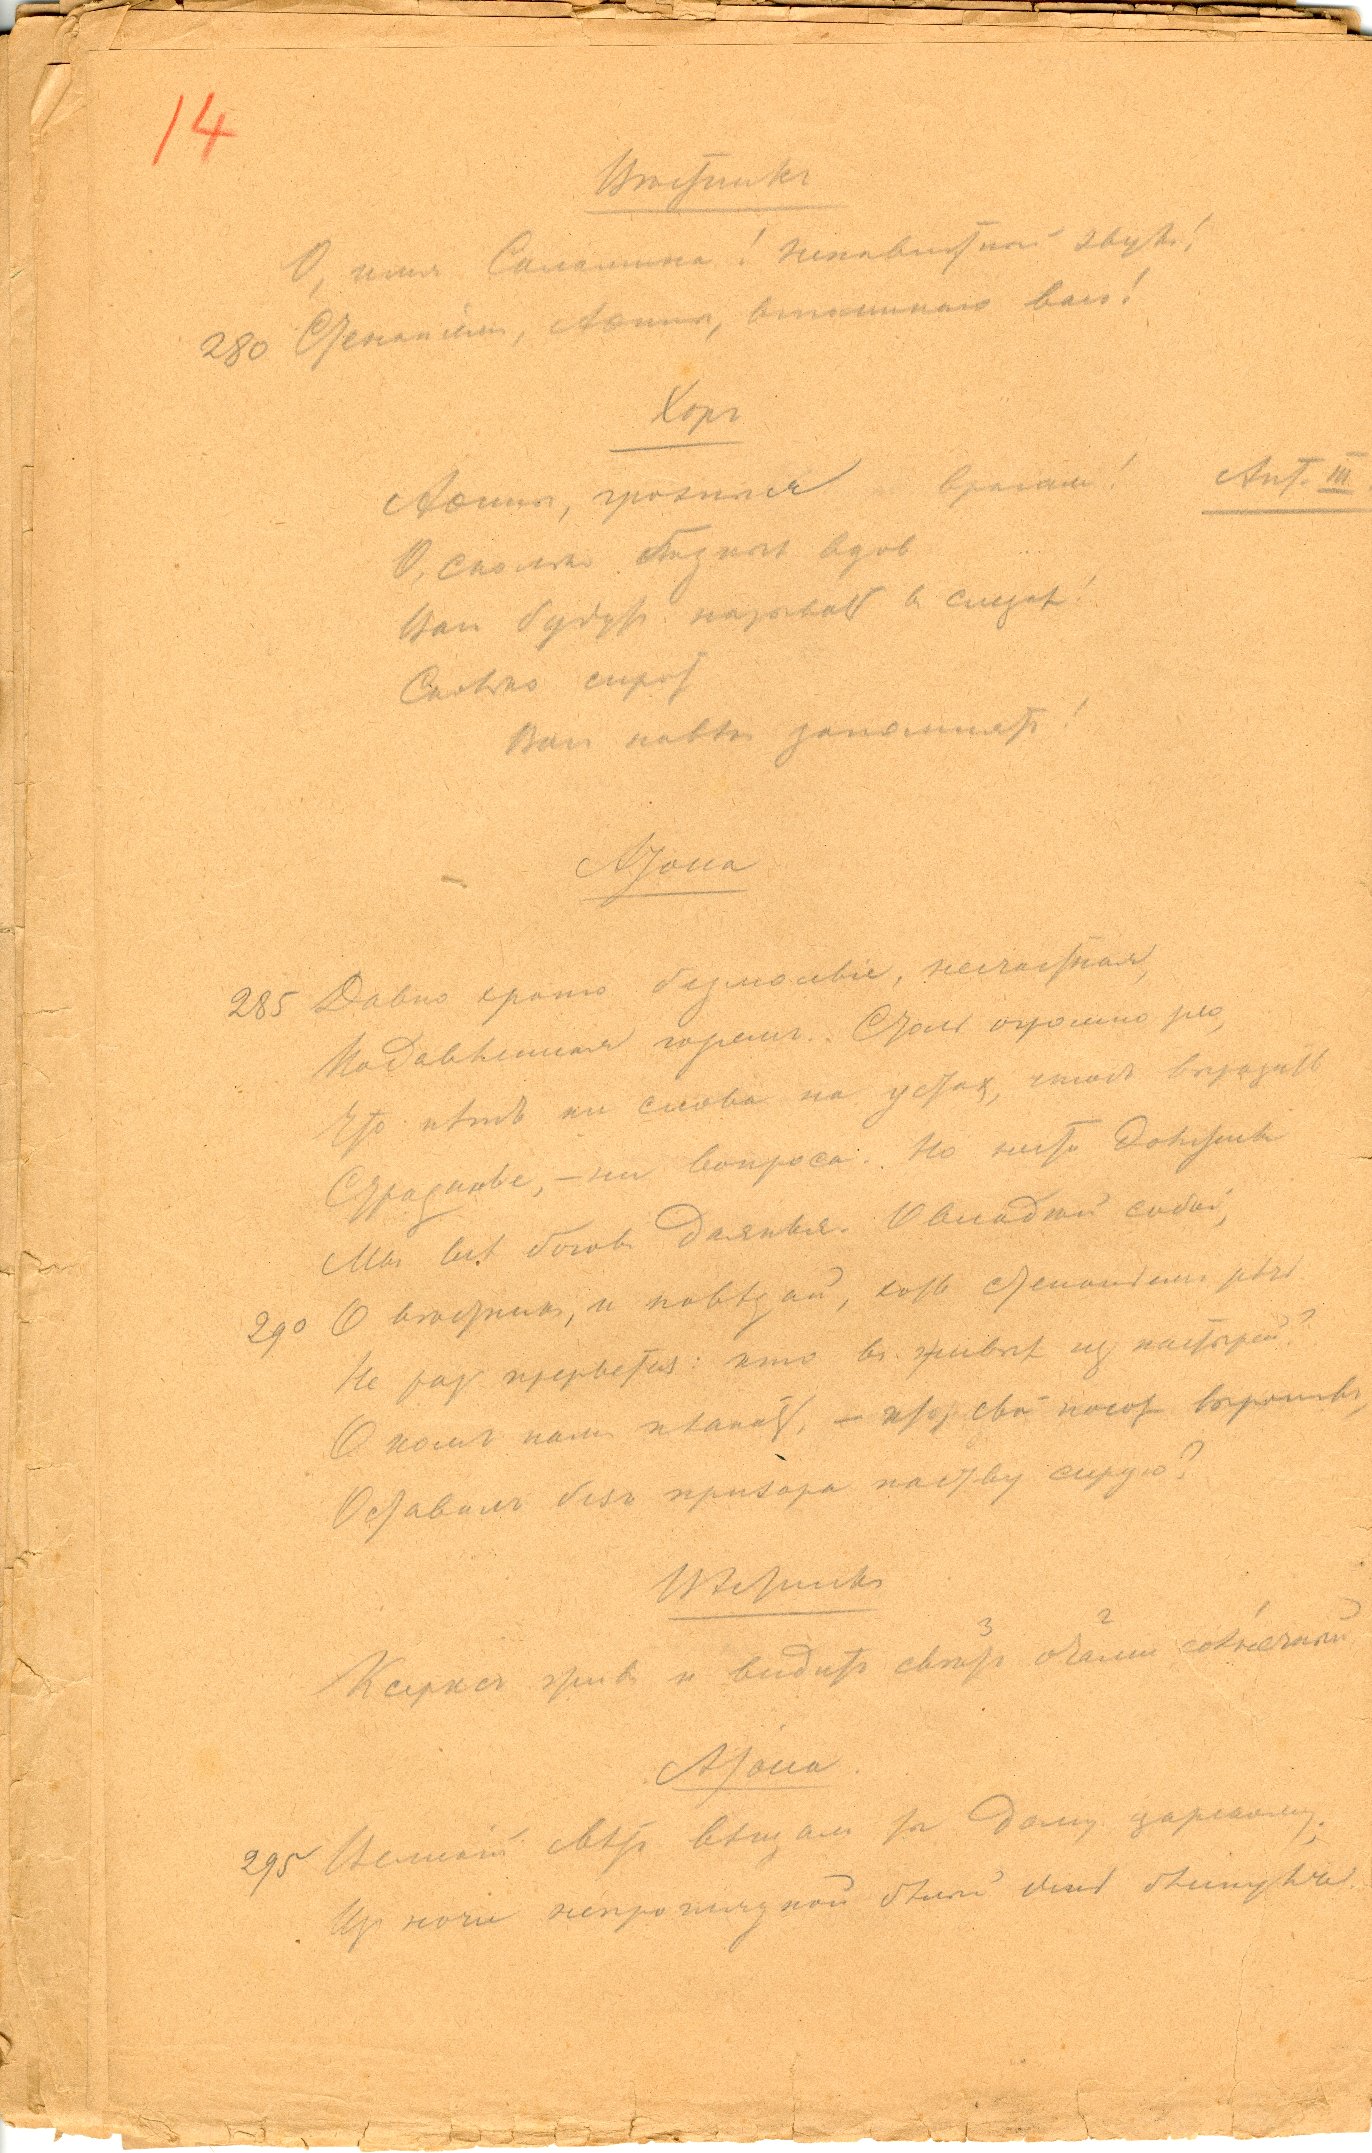 14
Вѣстникъ
О, имя Саламина! Ненавистный звукъ!
280 Стенаніемъ, Аѳины, вспоминаю васъ!
Хоръ
Аѳины, грозныя врагамъ! Ант. III
О, сколько бѣдныхъ вдовъ
Васъ будутъ называть въ слезахъ!
Сколько сиротъ
Васъ навѣкъ запомнятъ!
Атосса
285 Давно храню безмолвіе, несчастная,
Подавленная горемъ. Столь огромно зло,
Что нѣтъ ни слова на устахъ, чтобъ выразить
Страданье, – ни вопроса. Но нести должны
Мы всѣ боговъ даянья. Овладѣй собой,
290 О вѣстникъ, и повѣдай, хоть стенаніемъ рѣчь
Не разъ прервется: кто въ живыхъ изъ пастырей?
О комъ намъ плакать, – кто, свой посохъ выронивъ,
Оставилъ безъ призора паству сирую?
Вѣстникъ
Ксерксъ живъ и видитъ свѣтъ очами солнечный
3 2 1
Атосса.
295 Великій свѣтъ вѣщаешь ты дому царскому,
Изъ ночи непроглядной бѣлый день